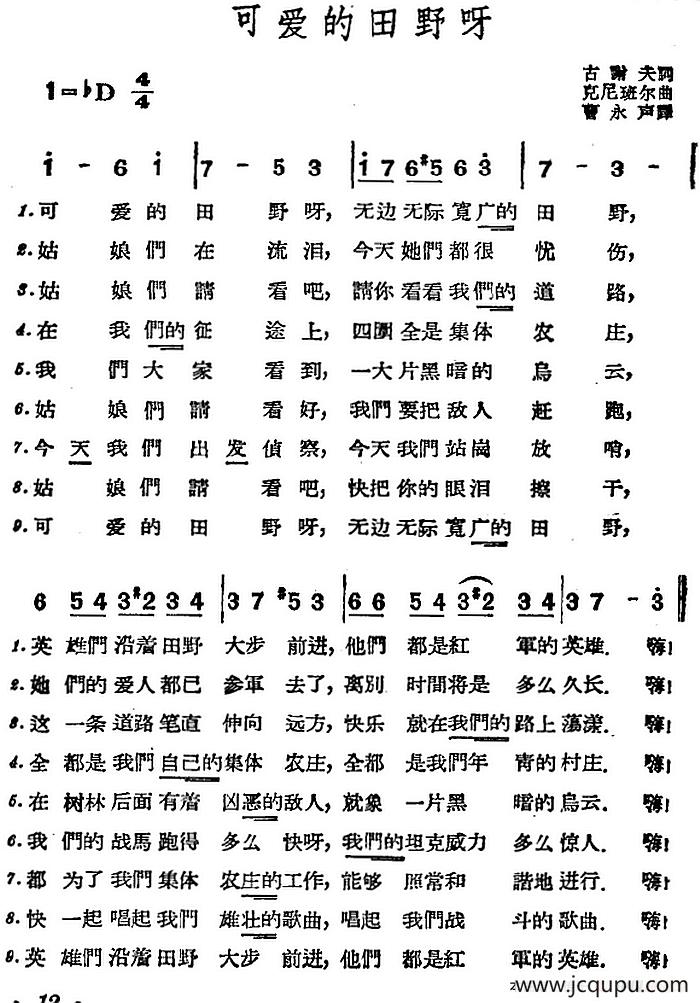 可爱的田野呀
1=♭D 4/4
古謝夫詞
克尼班尔曲
曹永声譯
i - 6 i | 7 - 5 3 | i 7 6 #5 6 3 | 7 - 3 - |
1.可 爱的 田 野呀, 无边 无际 寬广的 田 野,
2.姑 娘們 在 流泪, 今天 她們 都很 忧 伤,
3.姑 娘們 請 看吧, 請你 看看 我們的 道 路,
4.在 我們的 征 途上, 四圍 全是 集体 农 庄,
5.我 們大 家 看到, 一大 片黑 暗的 烏 云,
6.姑 娘們 請 看好, 我們 要把 敌人 赶 跑,
7.今 天我們 出 发偵察, 今天 我們 站崗 放 哨,
8.姑 娘們 請 看吧, 快把 你的 眼泪 擦 干,
9.可 爱的 田 野呀, 无边 无际 寬广的 田 野,
6 5 4 3 #2 3 4 | 3 7 #5 3 | 6 6 5 4 3 #2 3 4 | 3 7 - 3 ‖
1.英 雄們 沿着 田野 大步 前进, 他們 都是 紅 軍的 英雄. 嗨!
2.她 們的 爱人 都已 参軍 去了, 离別 时間 将是 多么 久长. 嗨!
3.这 一条 道路 笔直 伸向 远方, 快乐 就在 我們的 路上 蕩漾. 嗨!
4.全 都是 我們 自己的 集体 农庄, 全都 是我 們年 靑的 村庄. 嗨!
5.在 树林 后面 有着 凶恶的 敌人, 就象 一片 黑 暗的 烏云. 嗨!
6.我 們的 战馬 跑得 多么 快呀, 我們的 坦克 威力 多么 惊人. 嗨!
7.都 为了 我們 集体 农庄的 工作, 能够 照常 和 諧地 进行. 嗨!
8.快 一起 唱起 我們 雄壮的 歌曲, 唱起 我們 战 斗的 歌曲. 嗨!
9.英 雄們 沿着 田野 大步 前进, 他們 都是 紅 軍的 英雄. 嗨!
· 12 ·
www.jcqupu.com